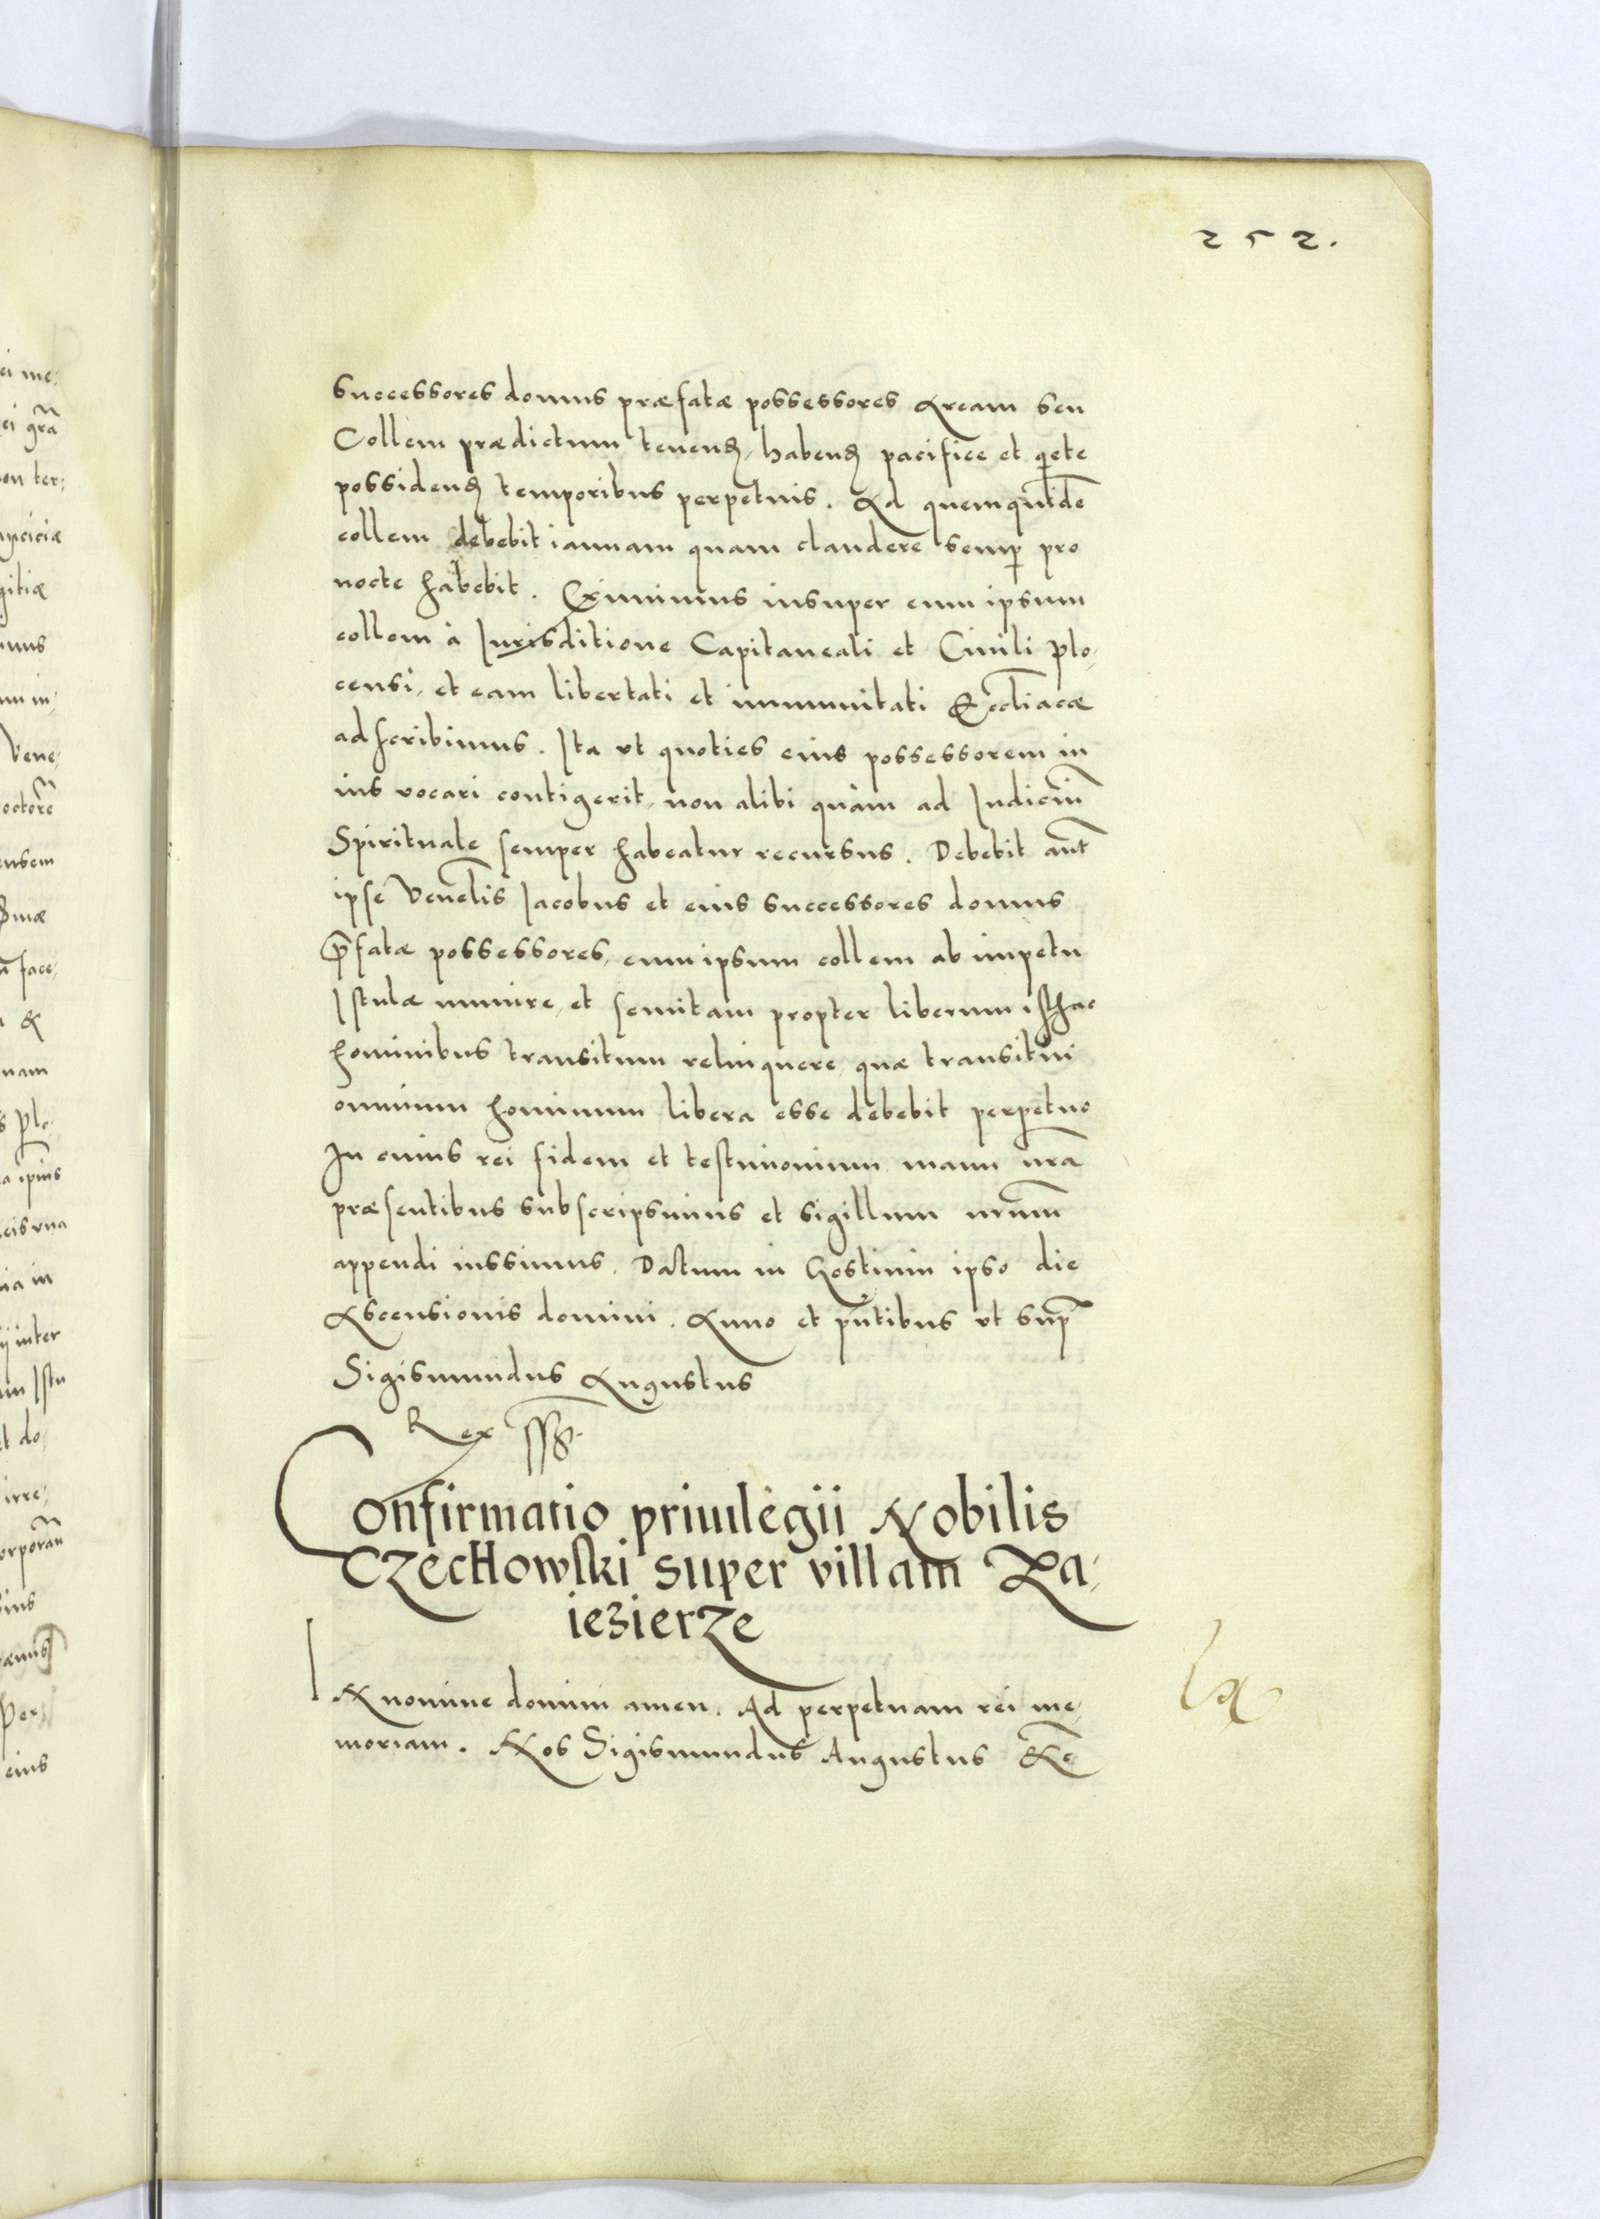 252.
successores domus præfatæ possessores Aream seu
Collem prædictum tenend, habend pacifice et q̃ete
possidend temporibus perpetuis. Ad quemquidẽ
collem debebit ianuam quam claudere semp̃ pro
nocte habebit. Eximimus insuper eum ipsum
collem à Iurisditione Capitaneali et Ciuili Plo,
censi, et eam libertati et immunitati Eccl̃iacæ
adscribimus. Ita vt quoties eius possessorem in
ius vocari contigerit, non alibi quàm ad Iudiciũ
Spirituale semper habeatur recursus. Debebit aũt
ipse Venel̃is Iacobus et eius successores domus
p̃fatæ possessores, eum ipsum collem ab impetu
Istulæ munire, et semitam propter liberum isthac
hominibus transitum relinquere, quæ transitui
omnium hominum libera esse debebit perpetuo
In cuius rei fidem et testimonium manu nr̃a
præsentibus subscripsimus et sigillum nr̃um
appendi iussimus. Datum in Gostinin ipso die
Ascensionis domini. Anno et p̃ntibus vt sup̃
Sigismundus Augustus
Rex ss.
Confirmatio priuilegii Nobilis
Czechowski super villam Za,
iezierze
IN nomine domini amen. Ad perpetuam rei me,
moriam. Nos Sigismundus Augustus &c̃
ei me,
ei gr̃a
on ter,
giciæ
gitiæ
mus
um in,
Vene,
octorẽ
ensem
face,
&
nam
s Plo,
a ip̃ius
cis vna
ia in
ij inter
m Istu
t do,
irre,
orporãn
ius
Per
eius